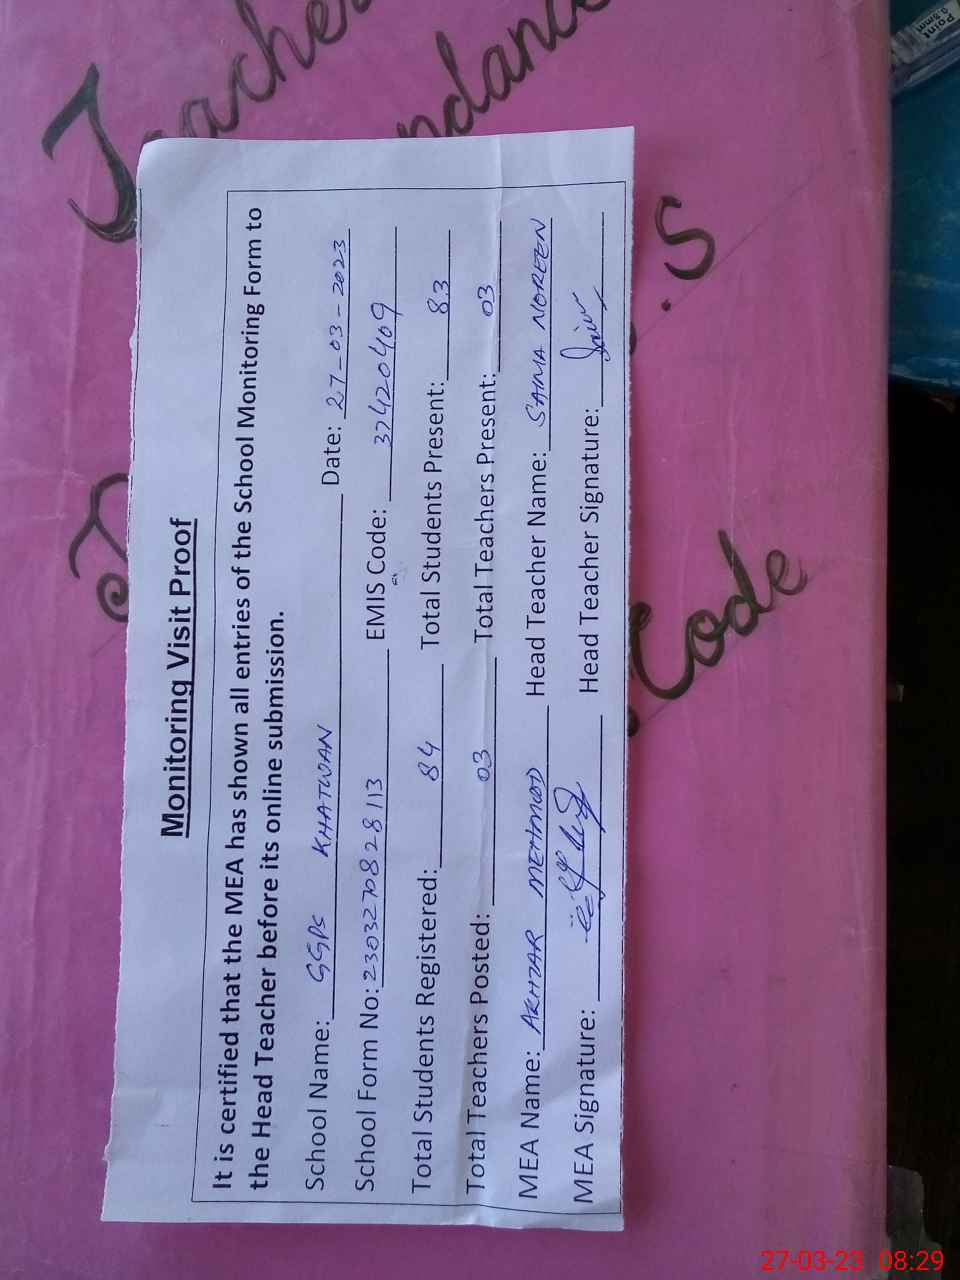 Teacher
ndance
Monitoring Visit Proof
It is certified that the MEA has shown all entries of the School Monitoring Form to
the Head Teacher before its online submission.
School Name: GGPS KHATWAN Date: 27-03-2023
School Form No: 2303270828113 EMIS Code: 37420409
Total Students Registered: 84 Total Students Present: 83
Total Teachers Posted: 03 Total Teachers Present: 03
MEA Name: AKHZAR MEHMOOD Head Teacher Name: SAIMA NOREEN
MEA Signature: Head Teacher Signature:
.S
Code
Point
0.5mm
27-03-23 08:29